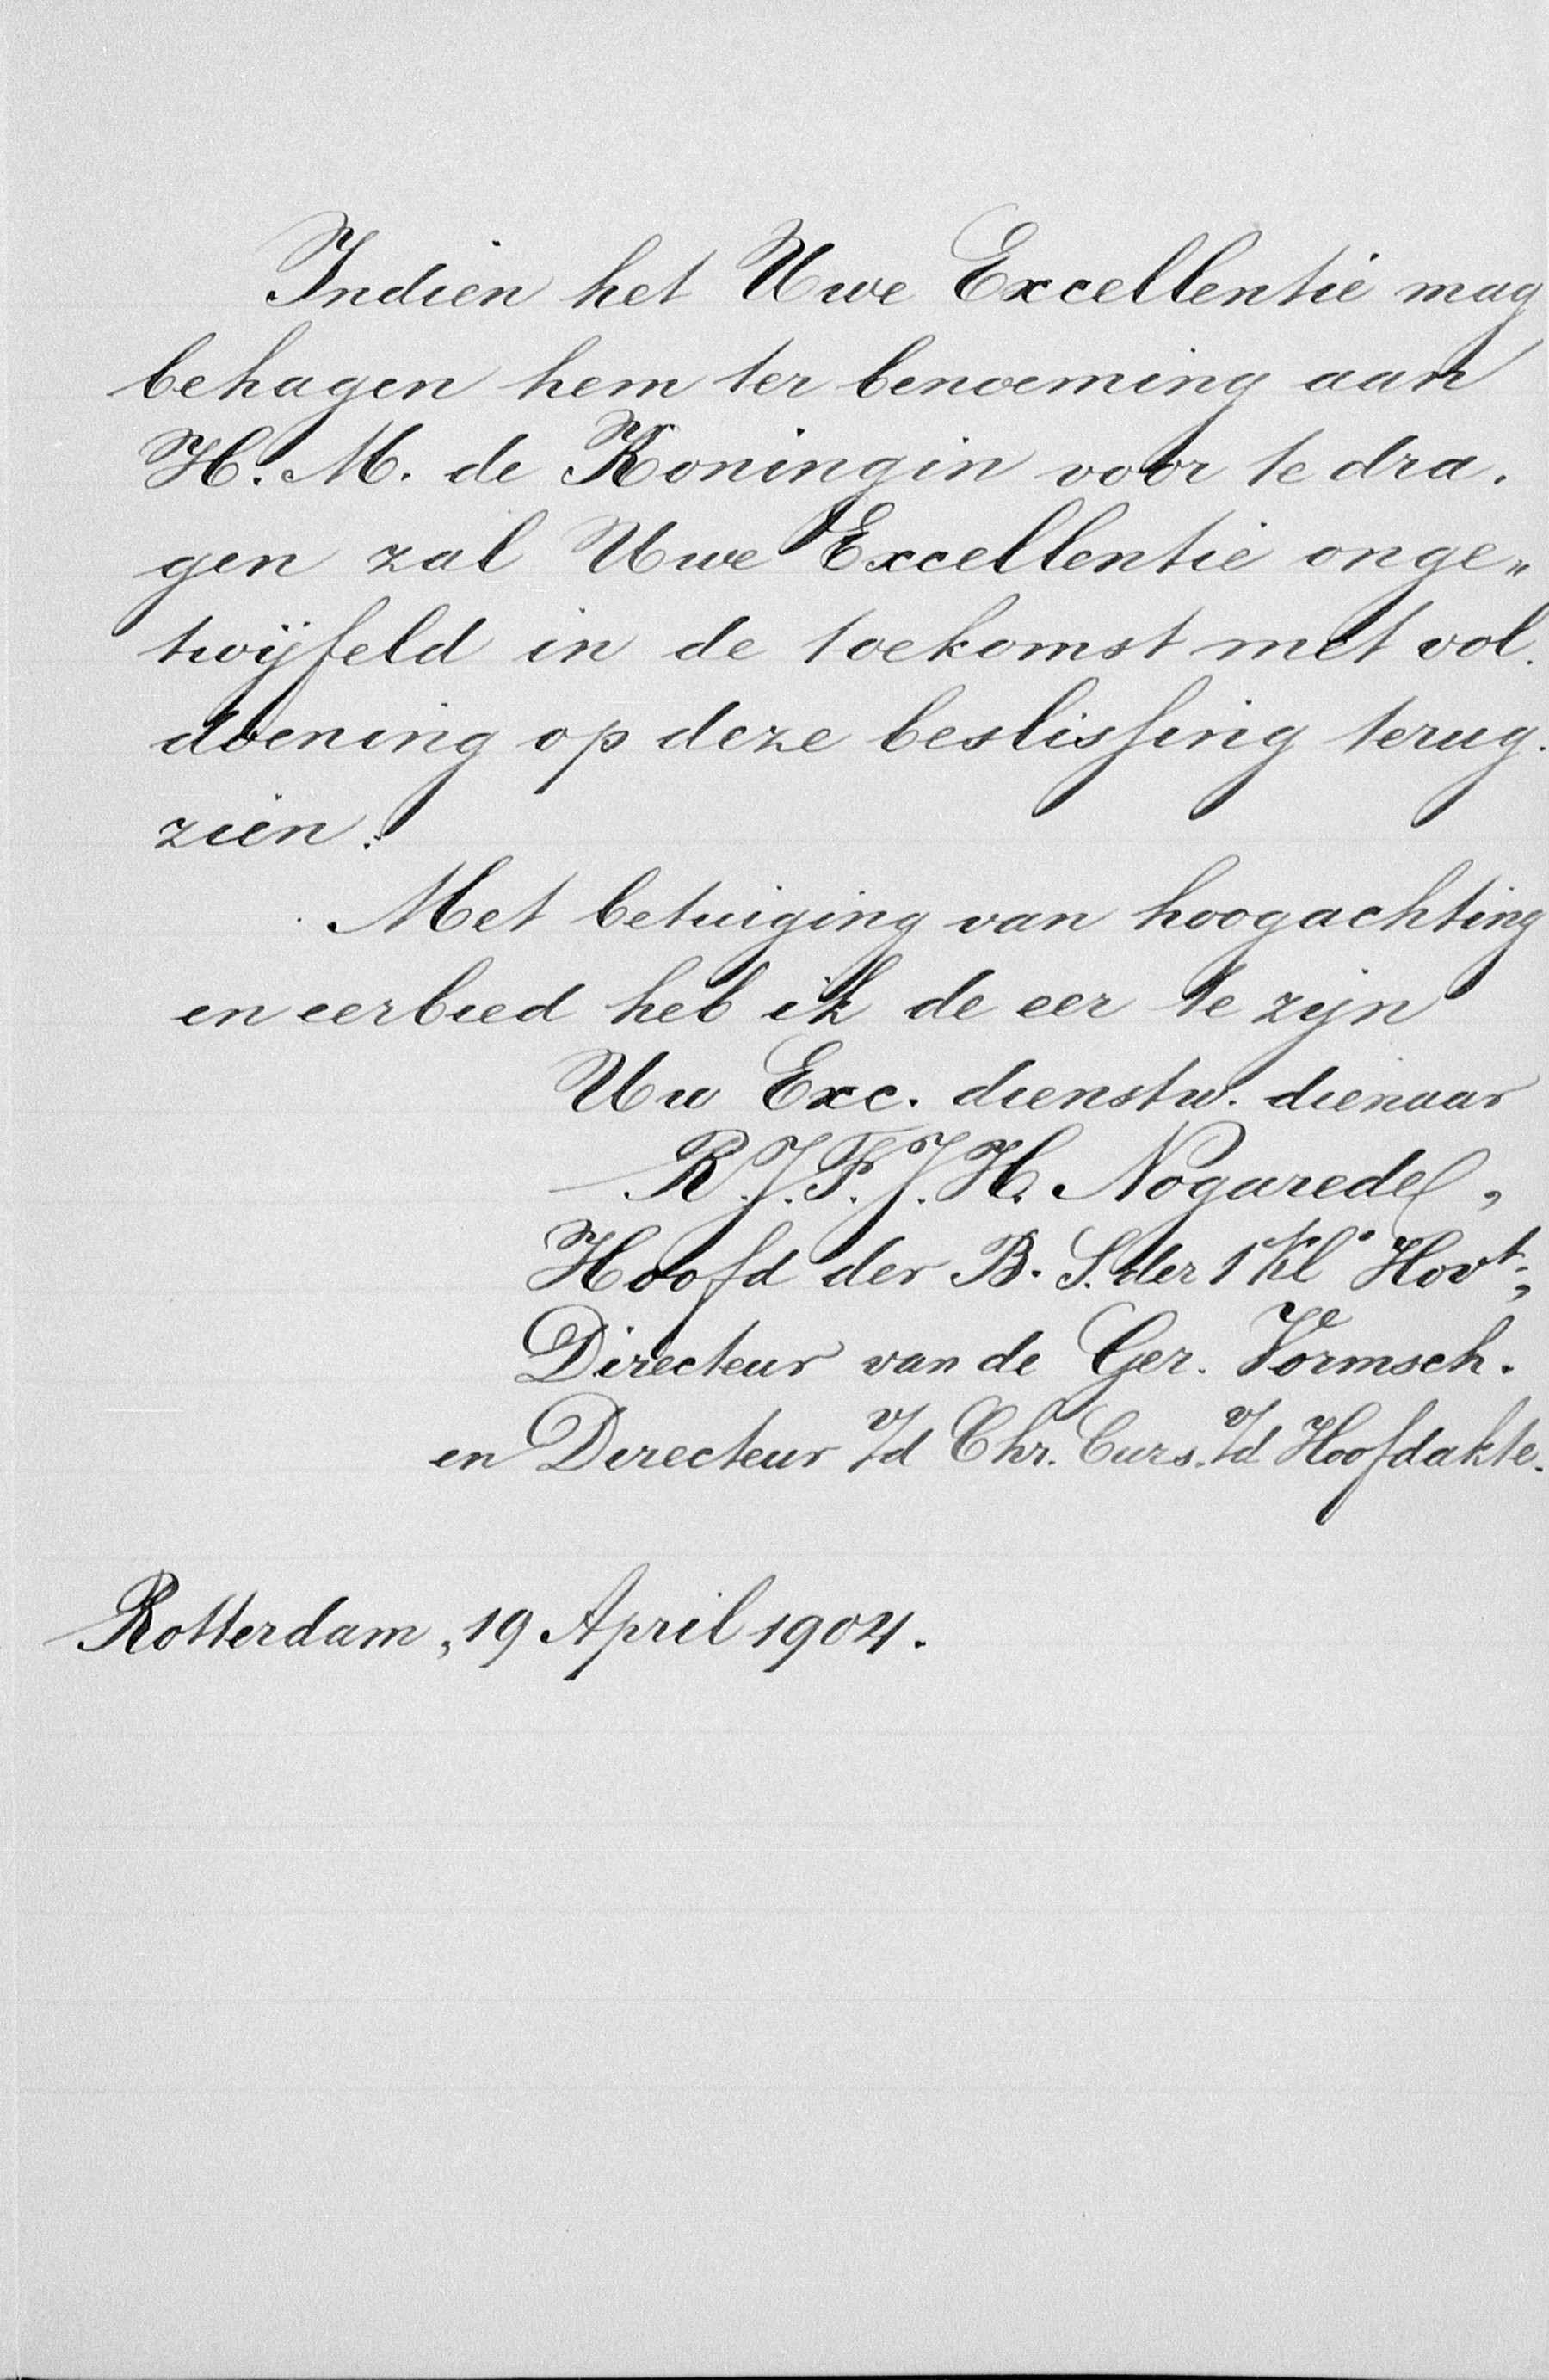 Indien het Uwe Excellentie mag
behagen hem ter benoeming aan
H. M. de Koningin voor te dra.
gen zal Uwe Excellentie onge„
twijfeld in de toekomst met vol.
doening op deze beslissing terug.
zien.
Met betuiging van hoogachting
en eerbied heb ik de eer te zijn
Uw Exc. dienstw. dienaar
R. J. F. J. H. Nogarede,
Hoofd der B. S. der 1 Kl. Hovt.,
Directeur van de Ger. Vormsch.
en Directeur v/d Chr. Curs. v/d Hoofdakte.
Rotterdam, 19 April 1904.